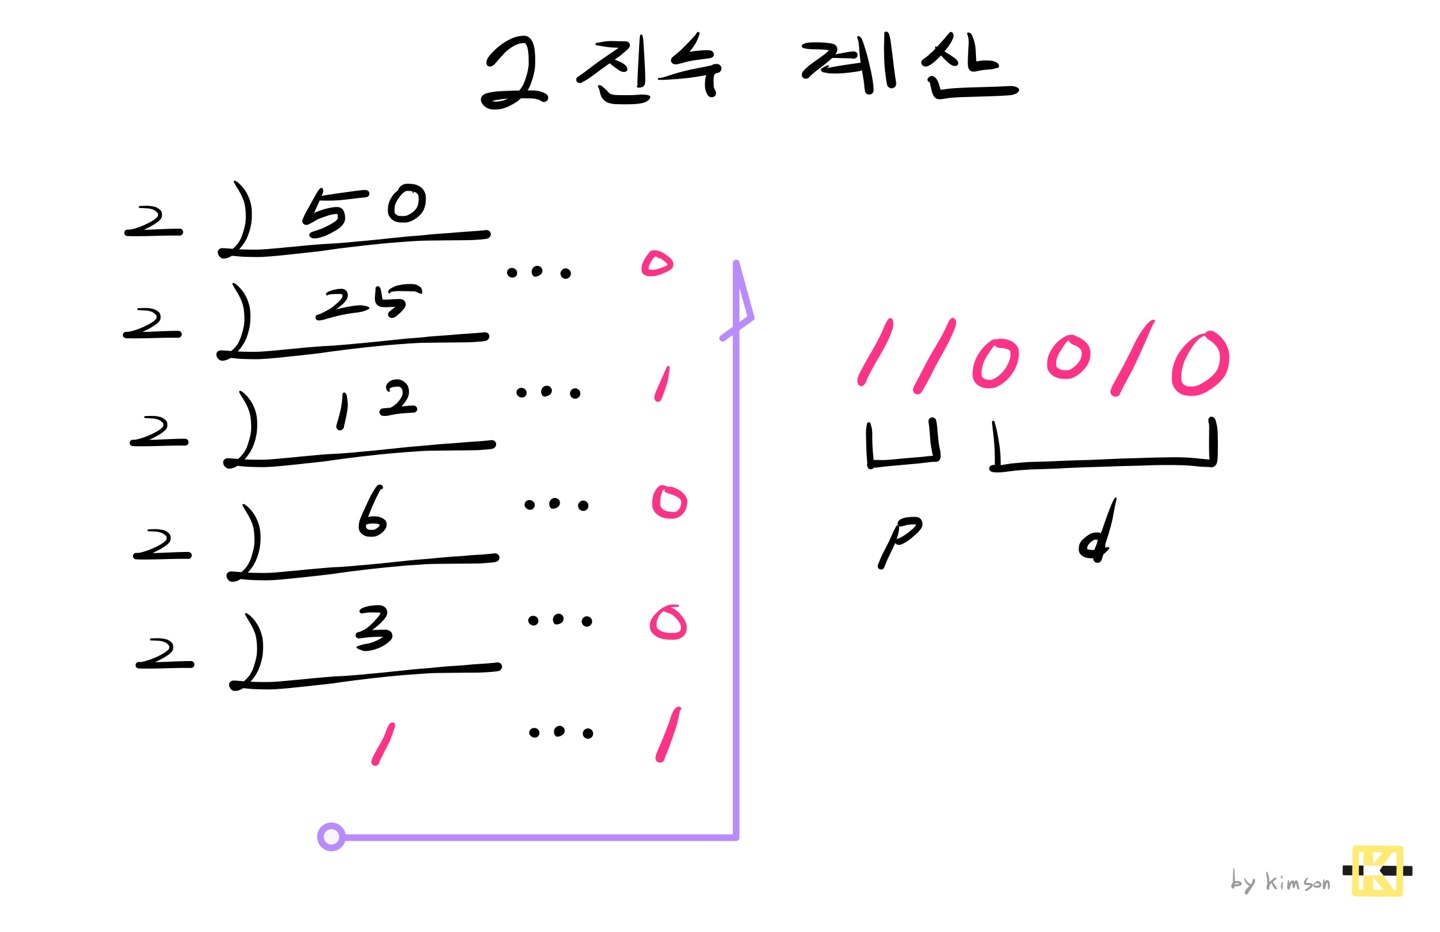 2진수 계산
2 ) 50
... 0
2 ) 25
... 1
2 ) 12
... 0
2 ) 6
... 0
2 ) 3
1 ... 1
110010
p d
by kimson
K